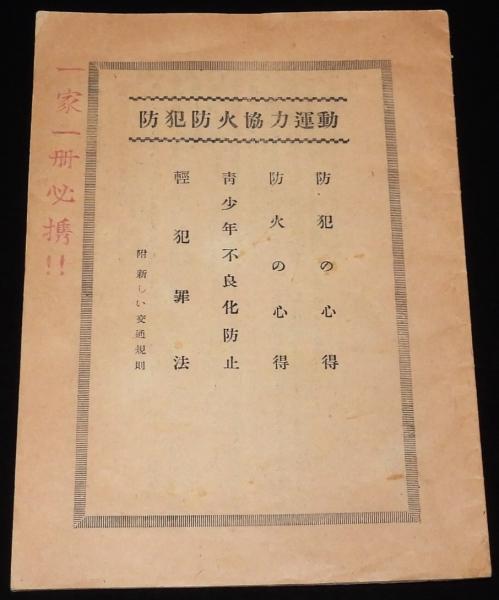 防犯防火協力運動
防犯の心得
防火の心得
靑少年不良化防止
輕犯罪法
附 新しい交通規則
一家一册必携!!